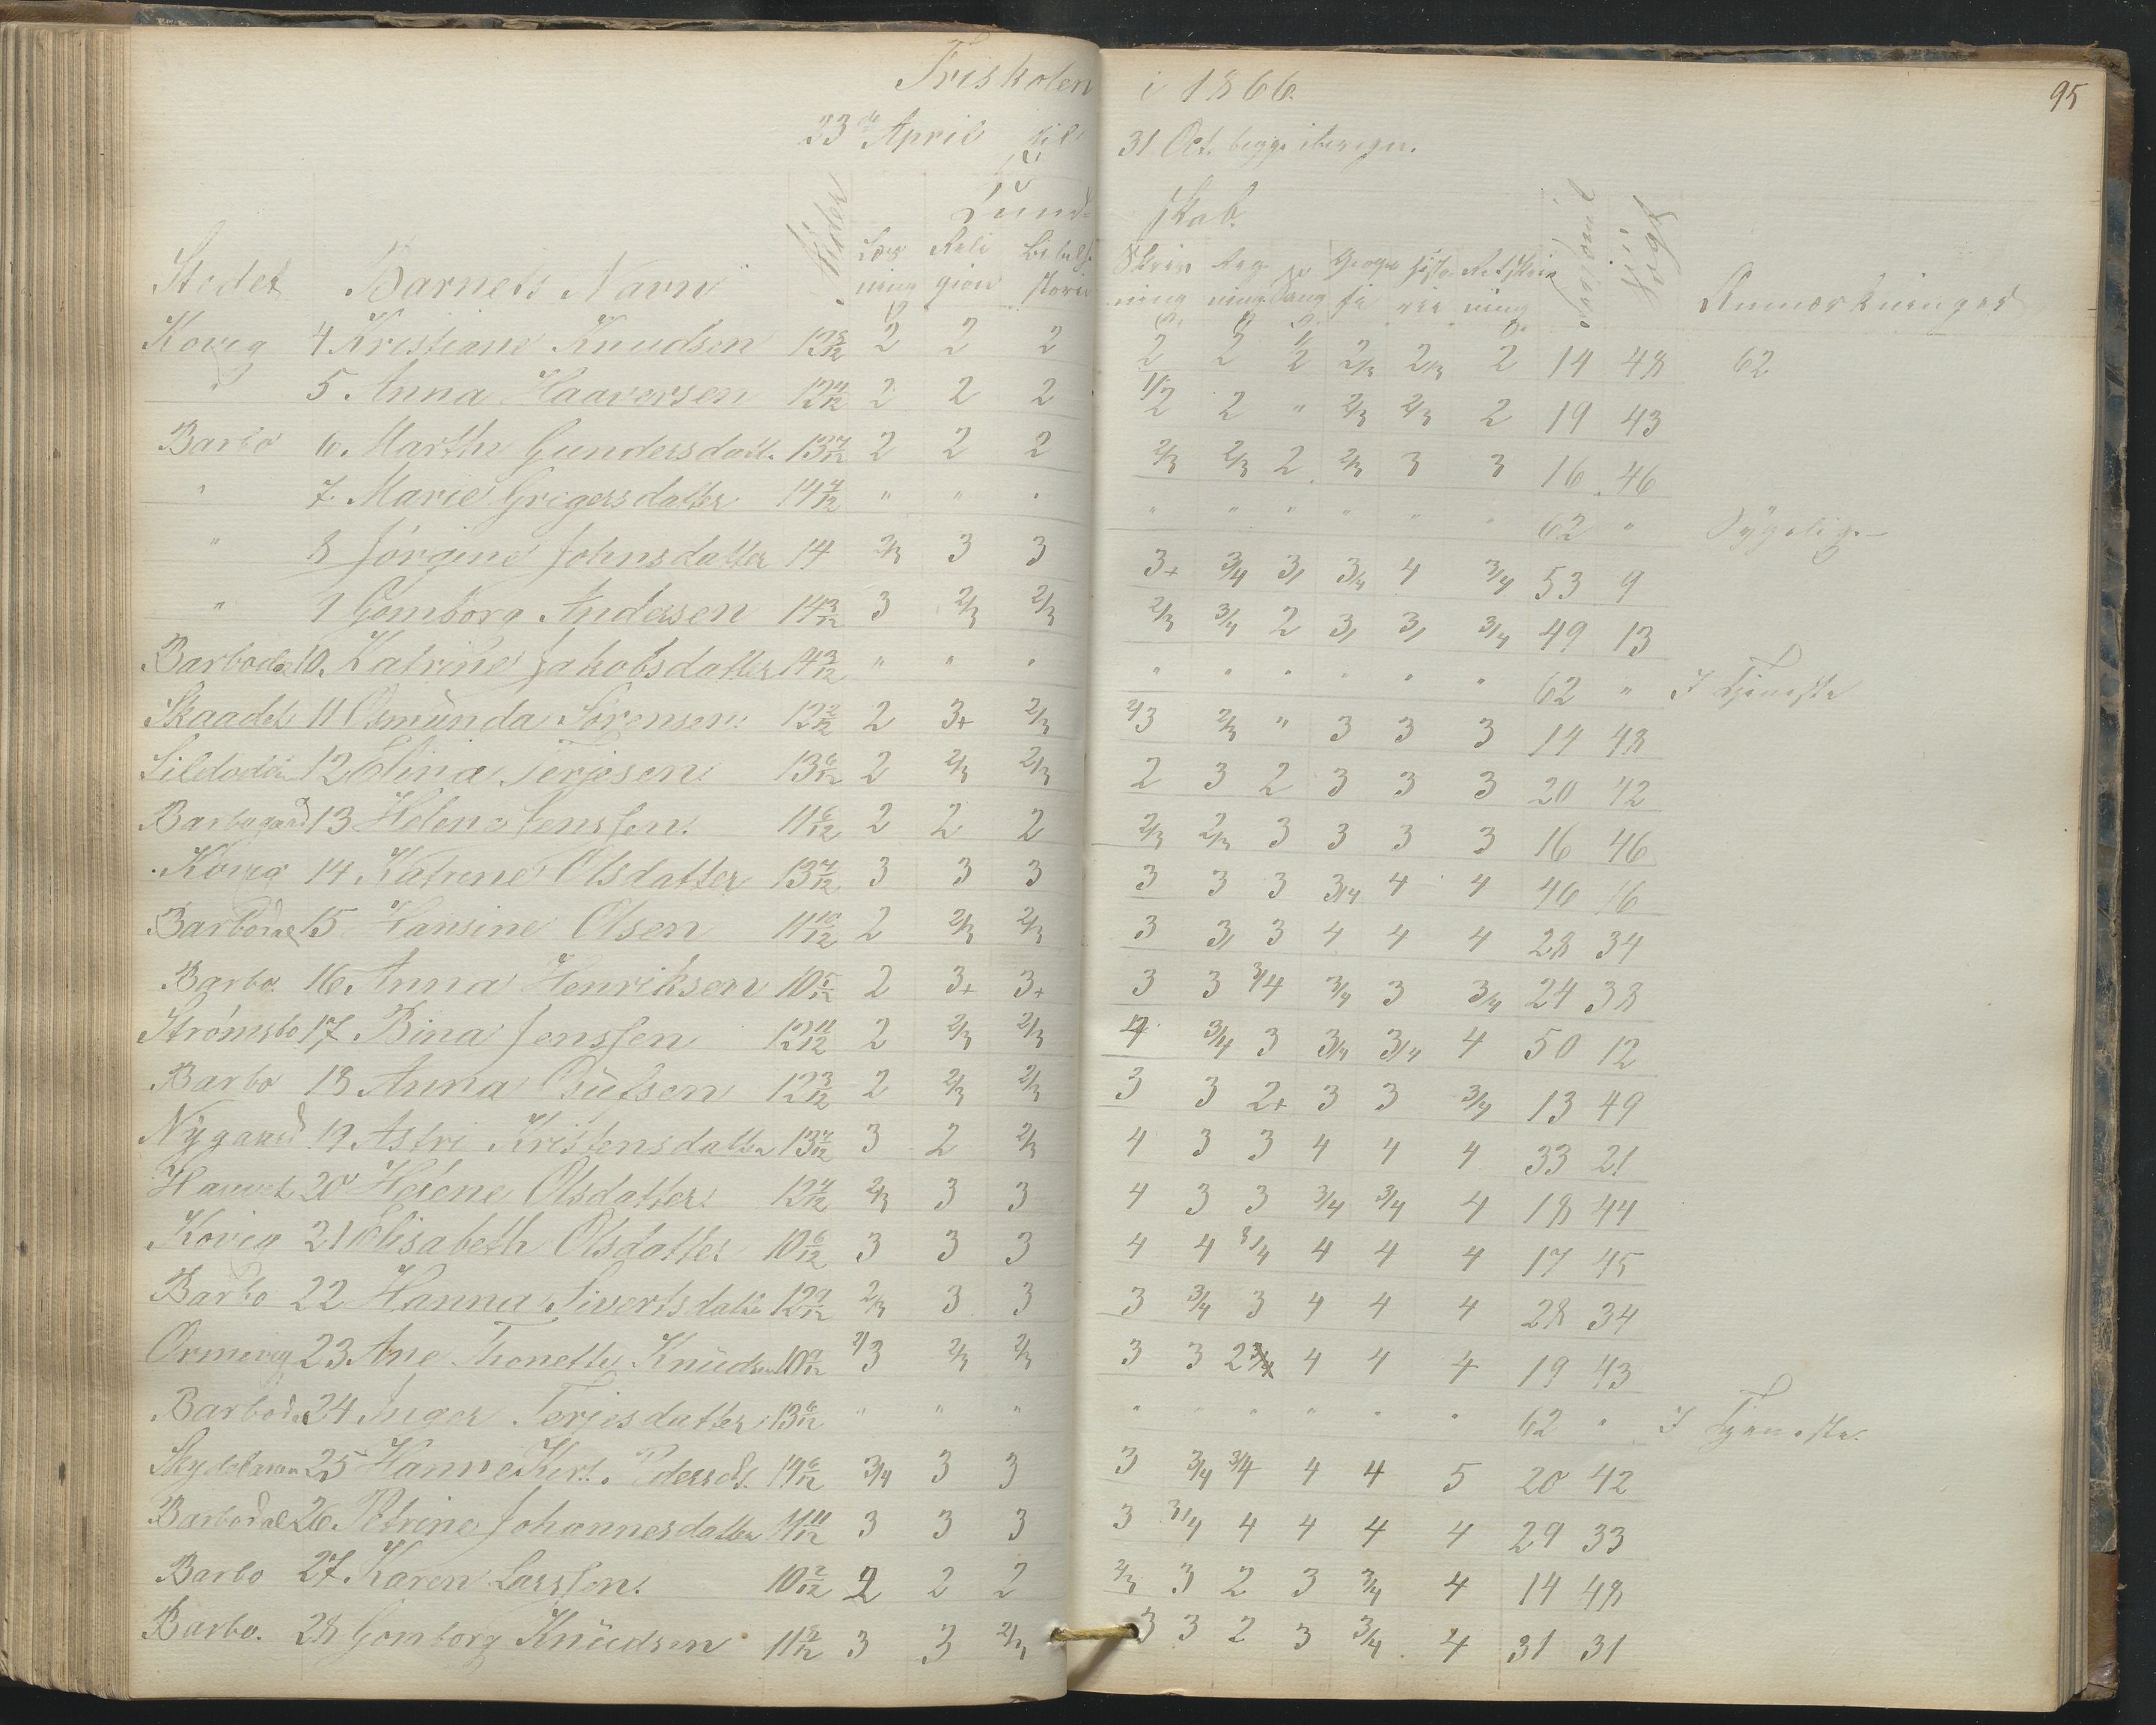 Friskolen i 1866. 95
23de April til 31 Oct. begge iberegn.
Kundskab.
Stedet Barnets Navn Alder Læsning Religion Bibelhistorie Skrivning Regning Sang Geografi Historie Retskrivning Forsømt Søgt Anmærkninger
Kovig 4 Kristiane Knudsen 2 2 2 2 2 1/2 2/3 2/3 2 14 48 62
" 5 Anna Haaversen 12 4/12 2 2 2 1/2 2 " 2/3 2/3 2 19 43
Barbo 6. Marthe Gundersdatt. 13 7/12 2 2 2 2/3 2/3 2 2/3 3 3 16 46
" 7. Marie Gregersdatter 14 4/12 " " " " " " " " " 62 " Sygelig.
" 8 Jörgine Johnsdatter 14 2/3 3 3 3+ 3/4 3/ 3/4 4 3/4 53 9
" 9 Gomborg Andersen 14 3/12 3 2/3 2/3 2/3 3/4 2 3/ 3/ 3/4 49 13
Barbodal 10. Katrine Jakobsdatter 14 3/12 " " " " " " " " " 62 " I Tjeneste
Skaadel 11 Osmunda Sörensen. 12 2/12 2 3+ 2/3 2/3 2/3 " 3 3 3 14 48
12 Elina Terjesen 13 6/12 2 2/3 2/3 2 3 2 3 3 3 20 42
Barbogaard 13 Helene Jenssen. 11 6/12 2 2 2 2/3 2/3 3 3 3 3 16 46
Kovig 14 Katrine Olsdatter 13 7/12 3 3 3 3 3 3 3/4 4 4 46 16
Barbodal 15 Hansine Olsen 11 10/12 2 2/3 2/3 3 3/ 3 4 4 4 28 34
Barbo. 16 Anna Henriksen 10 5/12 2 3+ 3+ 3 3 3/4 3/4 3 3/4 24 38
Strömsbo 17 Bina Jenssen 12 11/12 2 2/3 2/3 4 3/4 3 3/4 3/4 4 50 12
Barbo 18 Anna 12 3/12 2 2/3 2/3 3 3 2+ 3 3 3/4 13 49
Nygaard 19 Astri Kristensdatter 13 7/12 3 2 2/3 4 3 3 4 4 4 33 21
20 Helene Olsdatter 12 4/12 2/3 3 3 4 3 3 3/4 3/4 4 18 44
Kovig 21 Elisabeth Olsdatter 10 6/12 3 3 3 4 4 3/4 4 4 4 17 45
Barbo 22 Hanna Sivertsdatter 12 9/12 2/3 3 3 3 3/4 3 4 4 4 28 34
Ormevig 23 Ane Thonette Knudsen 10 9/12 2/3 2/3 2/3 3 3 2 4 4 4 19 43
Barbodal 24 Inger Terjesdatter 13 6/12 " " " " " " " " " 62 " I Tjeneste.
25 Hanne Kirst. Pedersd. 14 6/12 3/4 3 3 3 3/4 3/4 4 4 5 20 42
Barbodal 26. Petrine Johannesdatter 11 11/12 3 3 3 3 3/4 4 4 4 4 29 33
Barbo 27. Karen Larssen. 10 2/12 2 2 2 2/3 3 2 3 3/4 4 14 48
Barbo. 28 Gomborg Knudsen 3 3 2/3 3 3 2 3 3/4 4 31 31